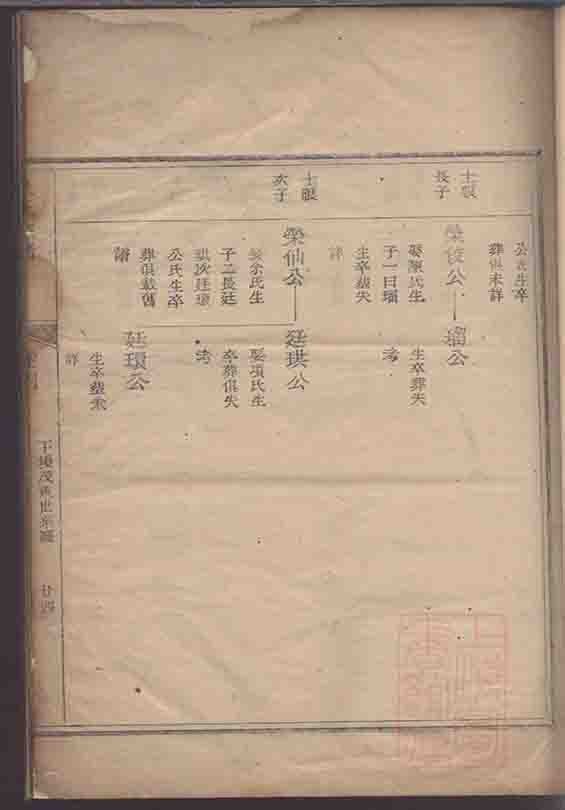 公氏生卒
葬俱未詳
士賑
長子
榮俊公
娶陳氏生
子一曰瑠
生卒塟失
詳
瑠公
生卒葬失
考
士賑
次子
榮仙公
娶余氏生
子二長廷
珙次廷環
公氏生卒
葬俱載舊
譜
廷珙公
娶項氏生
卒葬俱失
考
廷環公
生卒塟未
詳
世系
廿四